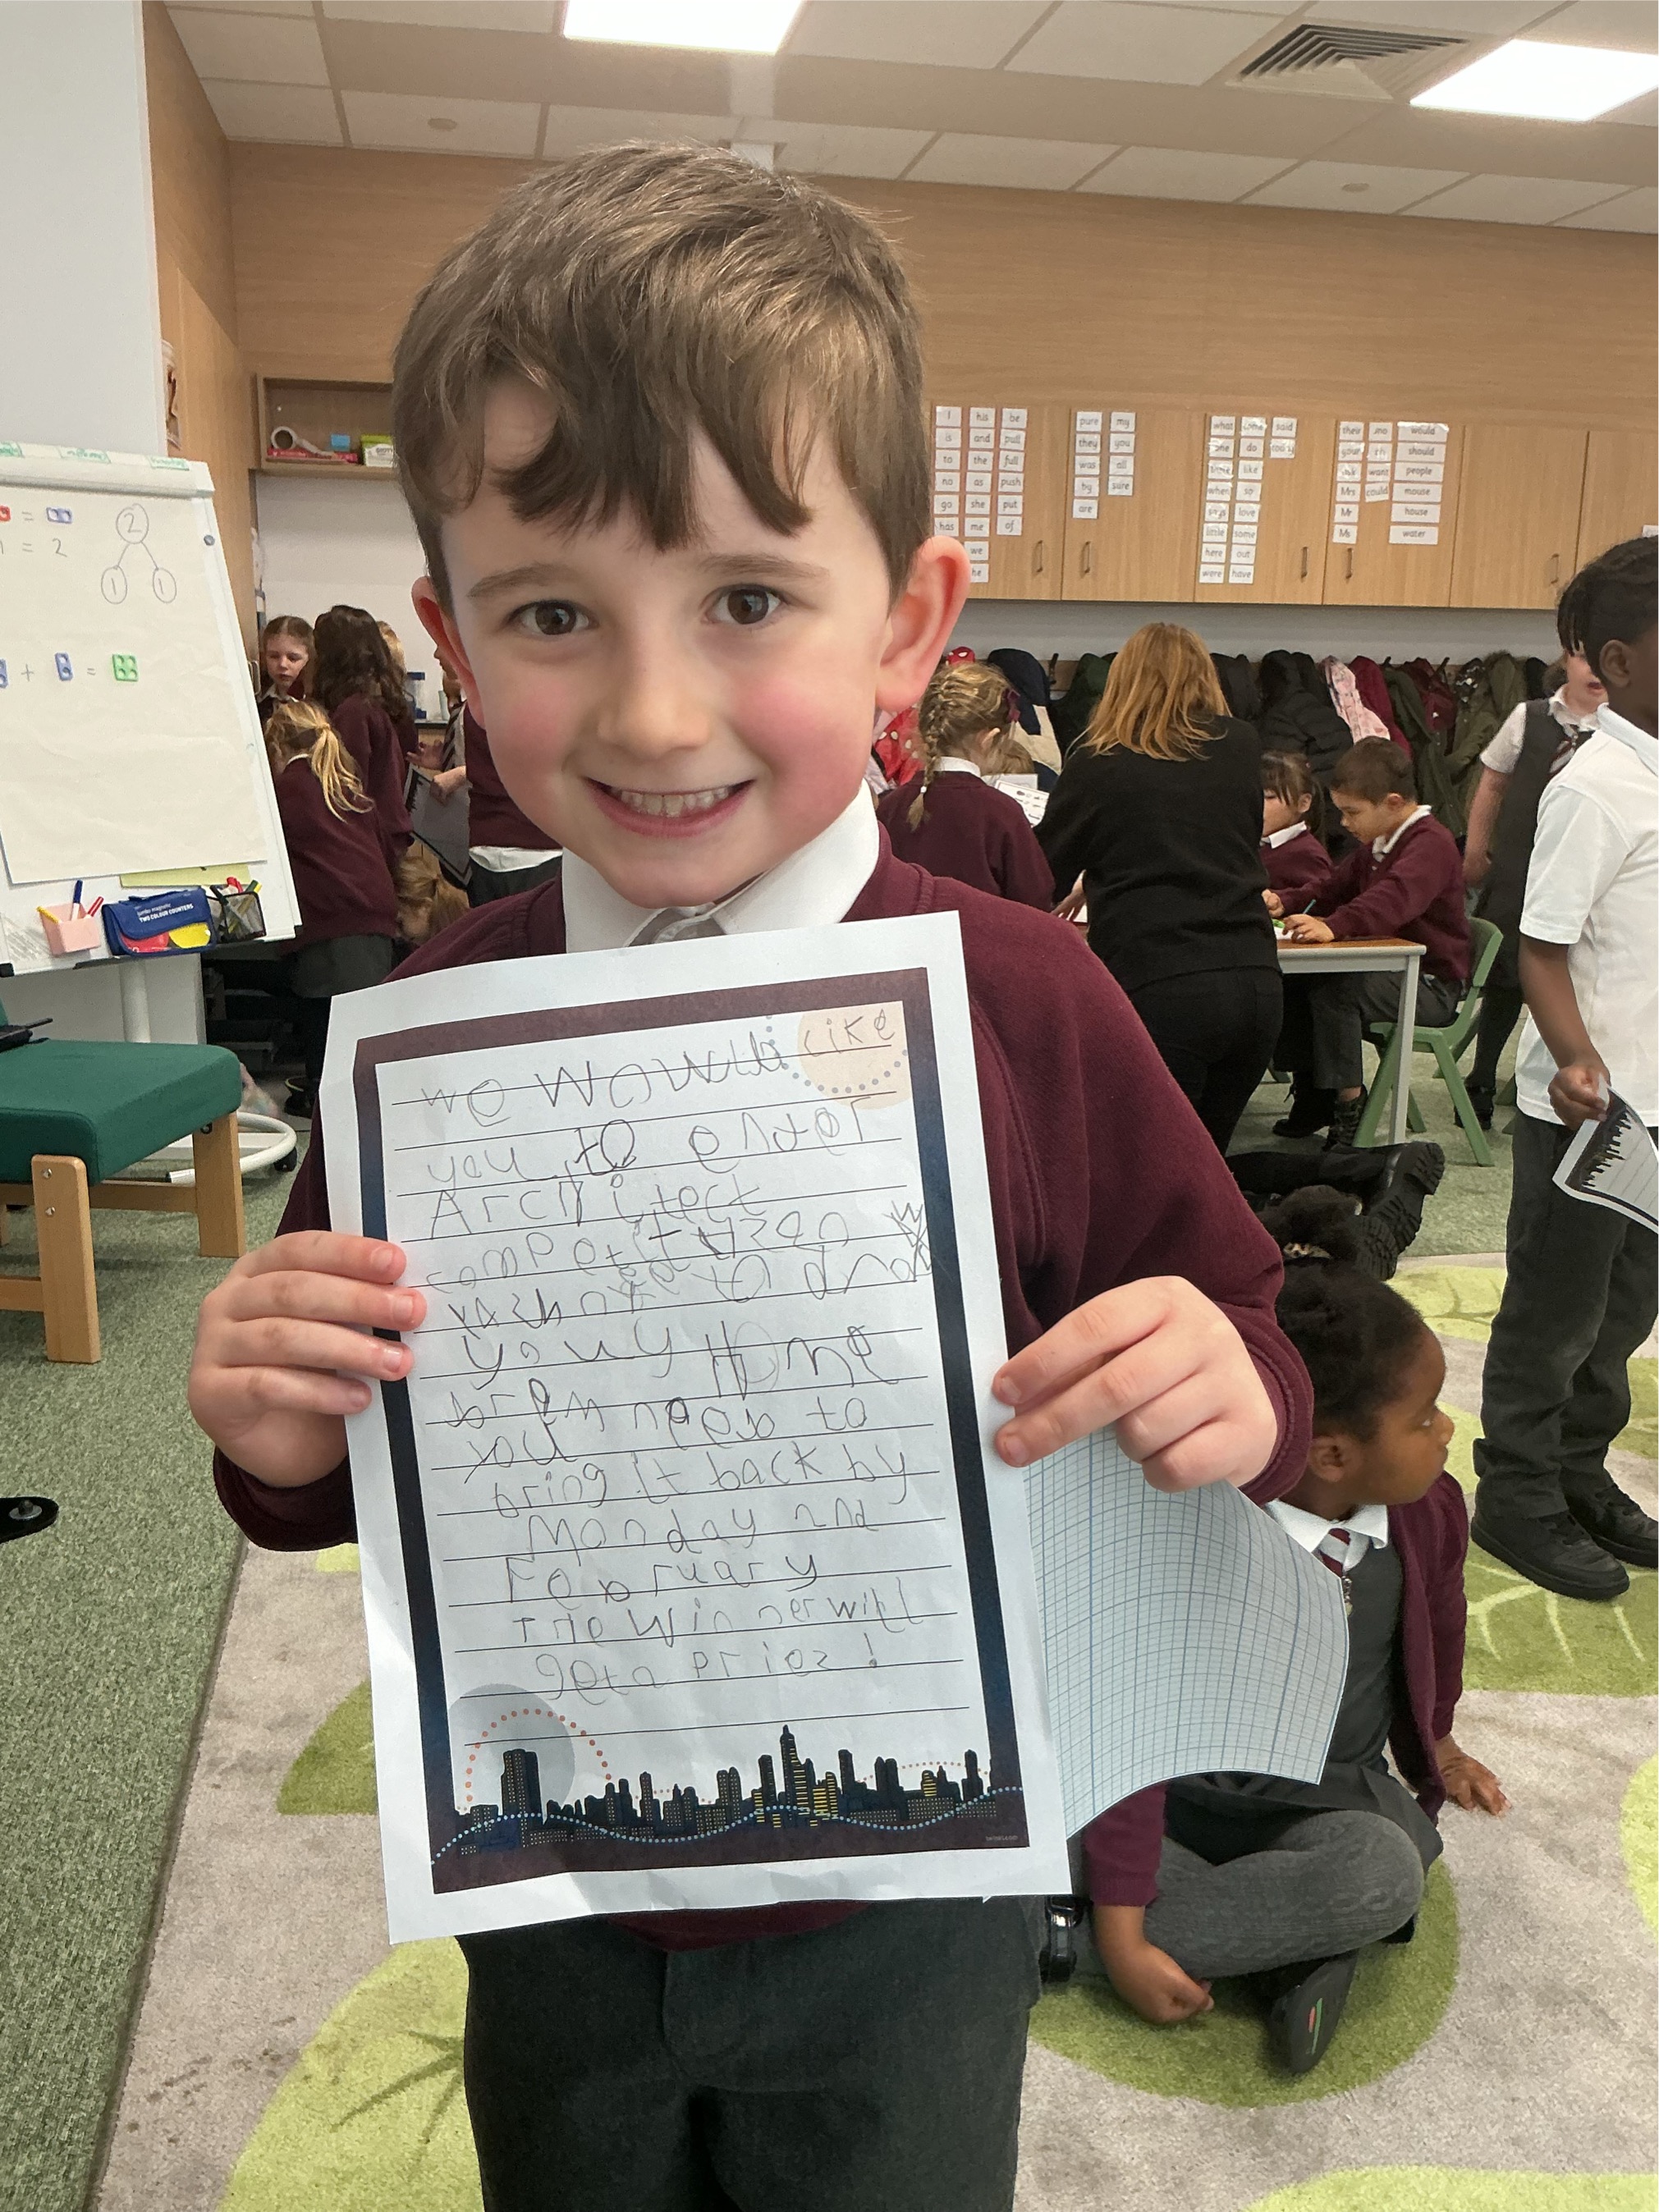 we Wowld like
you to enter
Architect
competitzen
to draw
youy Home
brem need to
you
bring it back by
Monday 2nd
February
The Winner will
get a priez !
I
is
to
no
go
has
his
and
the
as
she
me
we
he
be
pull
full
push
put
of
pure
they
was
by
are
my
you
all
sure
what
one
when
says
little
here
were
do
like
so
love
some
out
have
said
their
your
Mrs
Mr
Ms
want
could
would
should
people
mouse
house
water
= 
= 2
2
1 1
+ =
TWO COLOUR COUNTERS